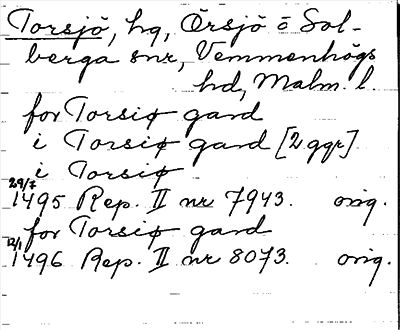 Torsjö, hg, Örsjö o Sol-
berga snr, Vemmenhögs
hd, Malm. l.
for Torsiø gard
i Torsiø gard [2 ggr]
i Torsiø
29/7
1495 Rep. II nr 7943. orig.
for Torsiø gard
12/1
1496 Rep. II nr 8073. orig.